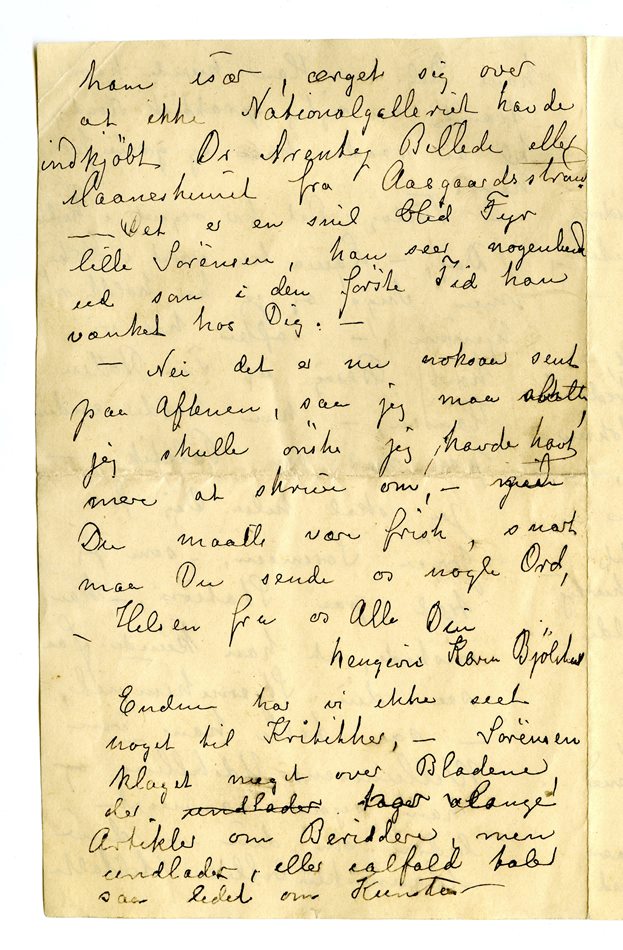 ham især, ærget sig over
at ikke Nationalgalleriet havde
indkjöbt Dr Arentz Billede eller
Maaneskinnet fra Aasgaardsstrand
— Det er en snil blid Fyr
lille Sörensen, han seer nogenlund
ud som i den förste Tid han
vanket hos Dig. —
— Nei det er nu noksaa sent
paa Aftenen, saa jeg maa slutte,
jeg skulle önske jeg havde havt
mere at skrive om, —
Du maatte være frisk, snart
maa Du sende os nogle Ord,
— Hilsen fra os Alle Din
hengivne Karen Bjölstad
Endnu har vi ikke seet
noget til Kritikker, — Sörensen
klaget meget over Bladene,
der undlader tager lange
Artikler om Beriddere, men
undlader, eller ialfald taler
saa lidet om Kunsten —